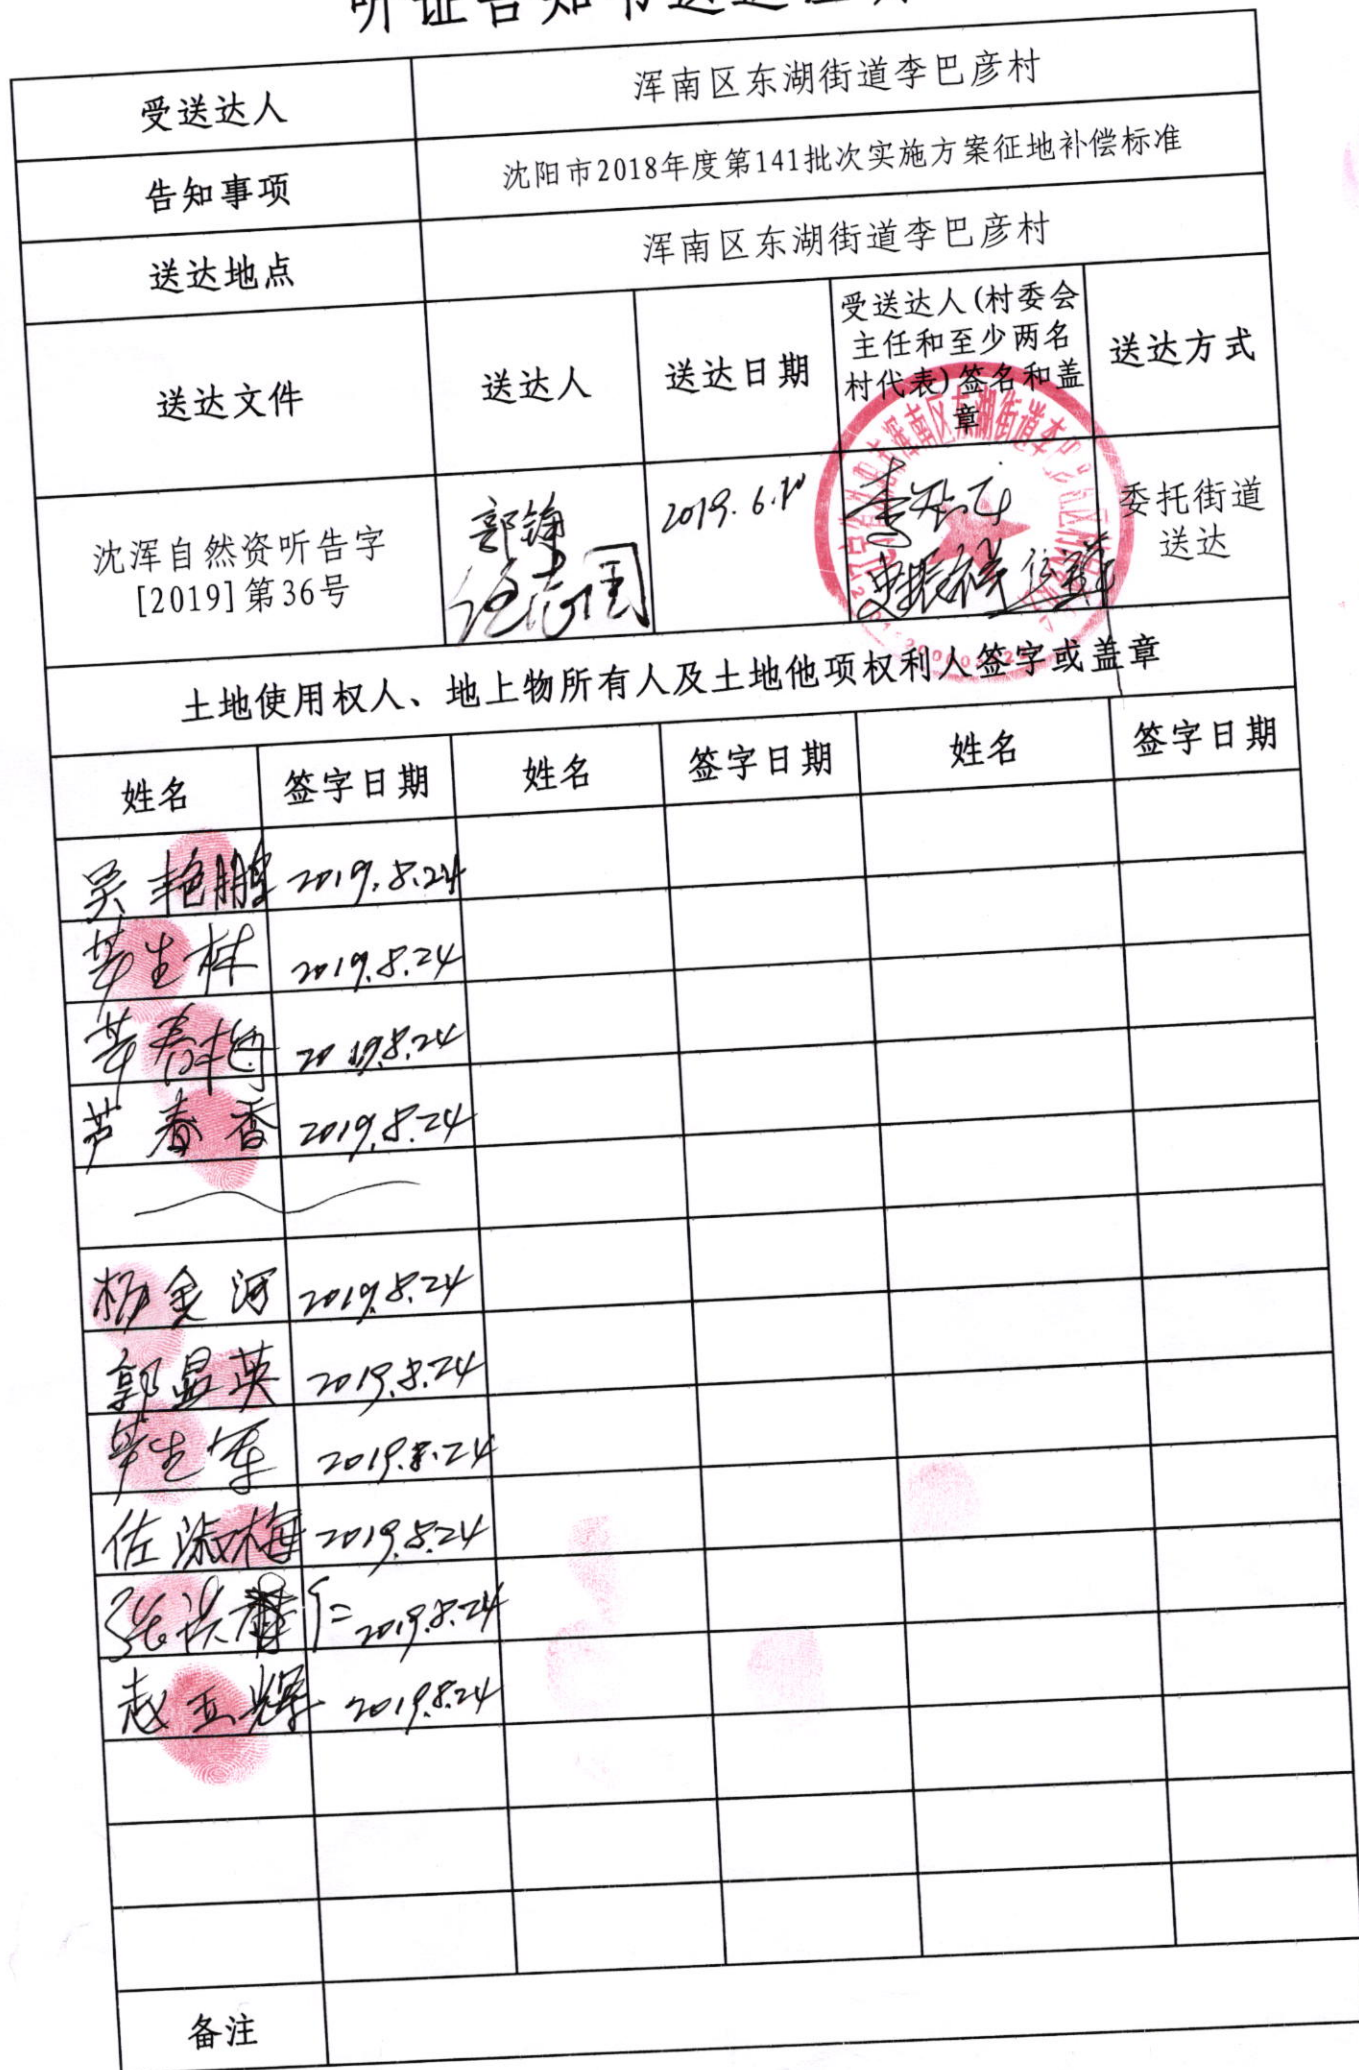 受送达人 浑南区东湖街道李巴彦村
告知事项 沈阳市2018年度第141批次实施方案征地补偿标准
送达地点 浑南区东湖街道李巴彦村
送达文件 送达人 送达日期 受送达人(村委会
主任和至少两名
村代表)签名和盖
章 送达方式
沈浑自然资听告字
[2019]第36号 郭锦 2019.6.10 史振祥 委托街道
送达
土地使用权人、地上物所有人及土地他项权利人签字或盖章
姓名 签字日期 姓名 签字日期 姓名 签字日期
吴艳鹏 2019.8.24
生林 2019.8.24
春梅 2019.8.24
芦春香 2019.8.24
杨金河 2019.8.24
郭显英 2019.8.24
生军 2019.8.24
佐淑梅 2019.8.24
张洪仁 2019.8.24
赵玉辉 2019.8.24
备注